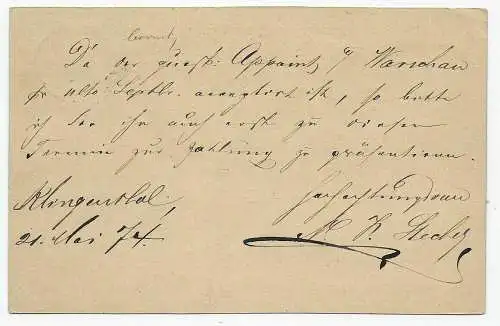 Da der quest. Appoint p/ Warschau
pr ulto Septbr. acceptirt ist, so bitte
ich Sie ihn auch erst zu diesem
Termin zur Zahlung zu präsentiren.
Klingenthal,
21. Mai 74.
Hochachtungsvoll
Stecher